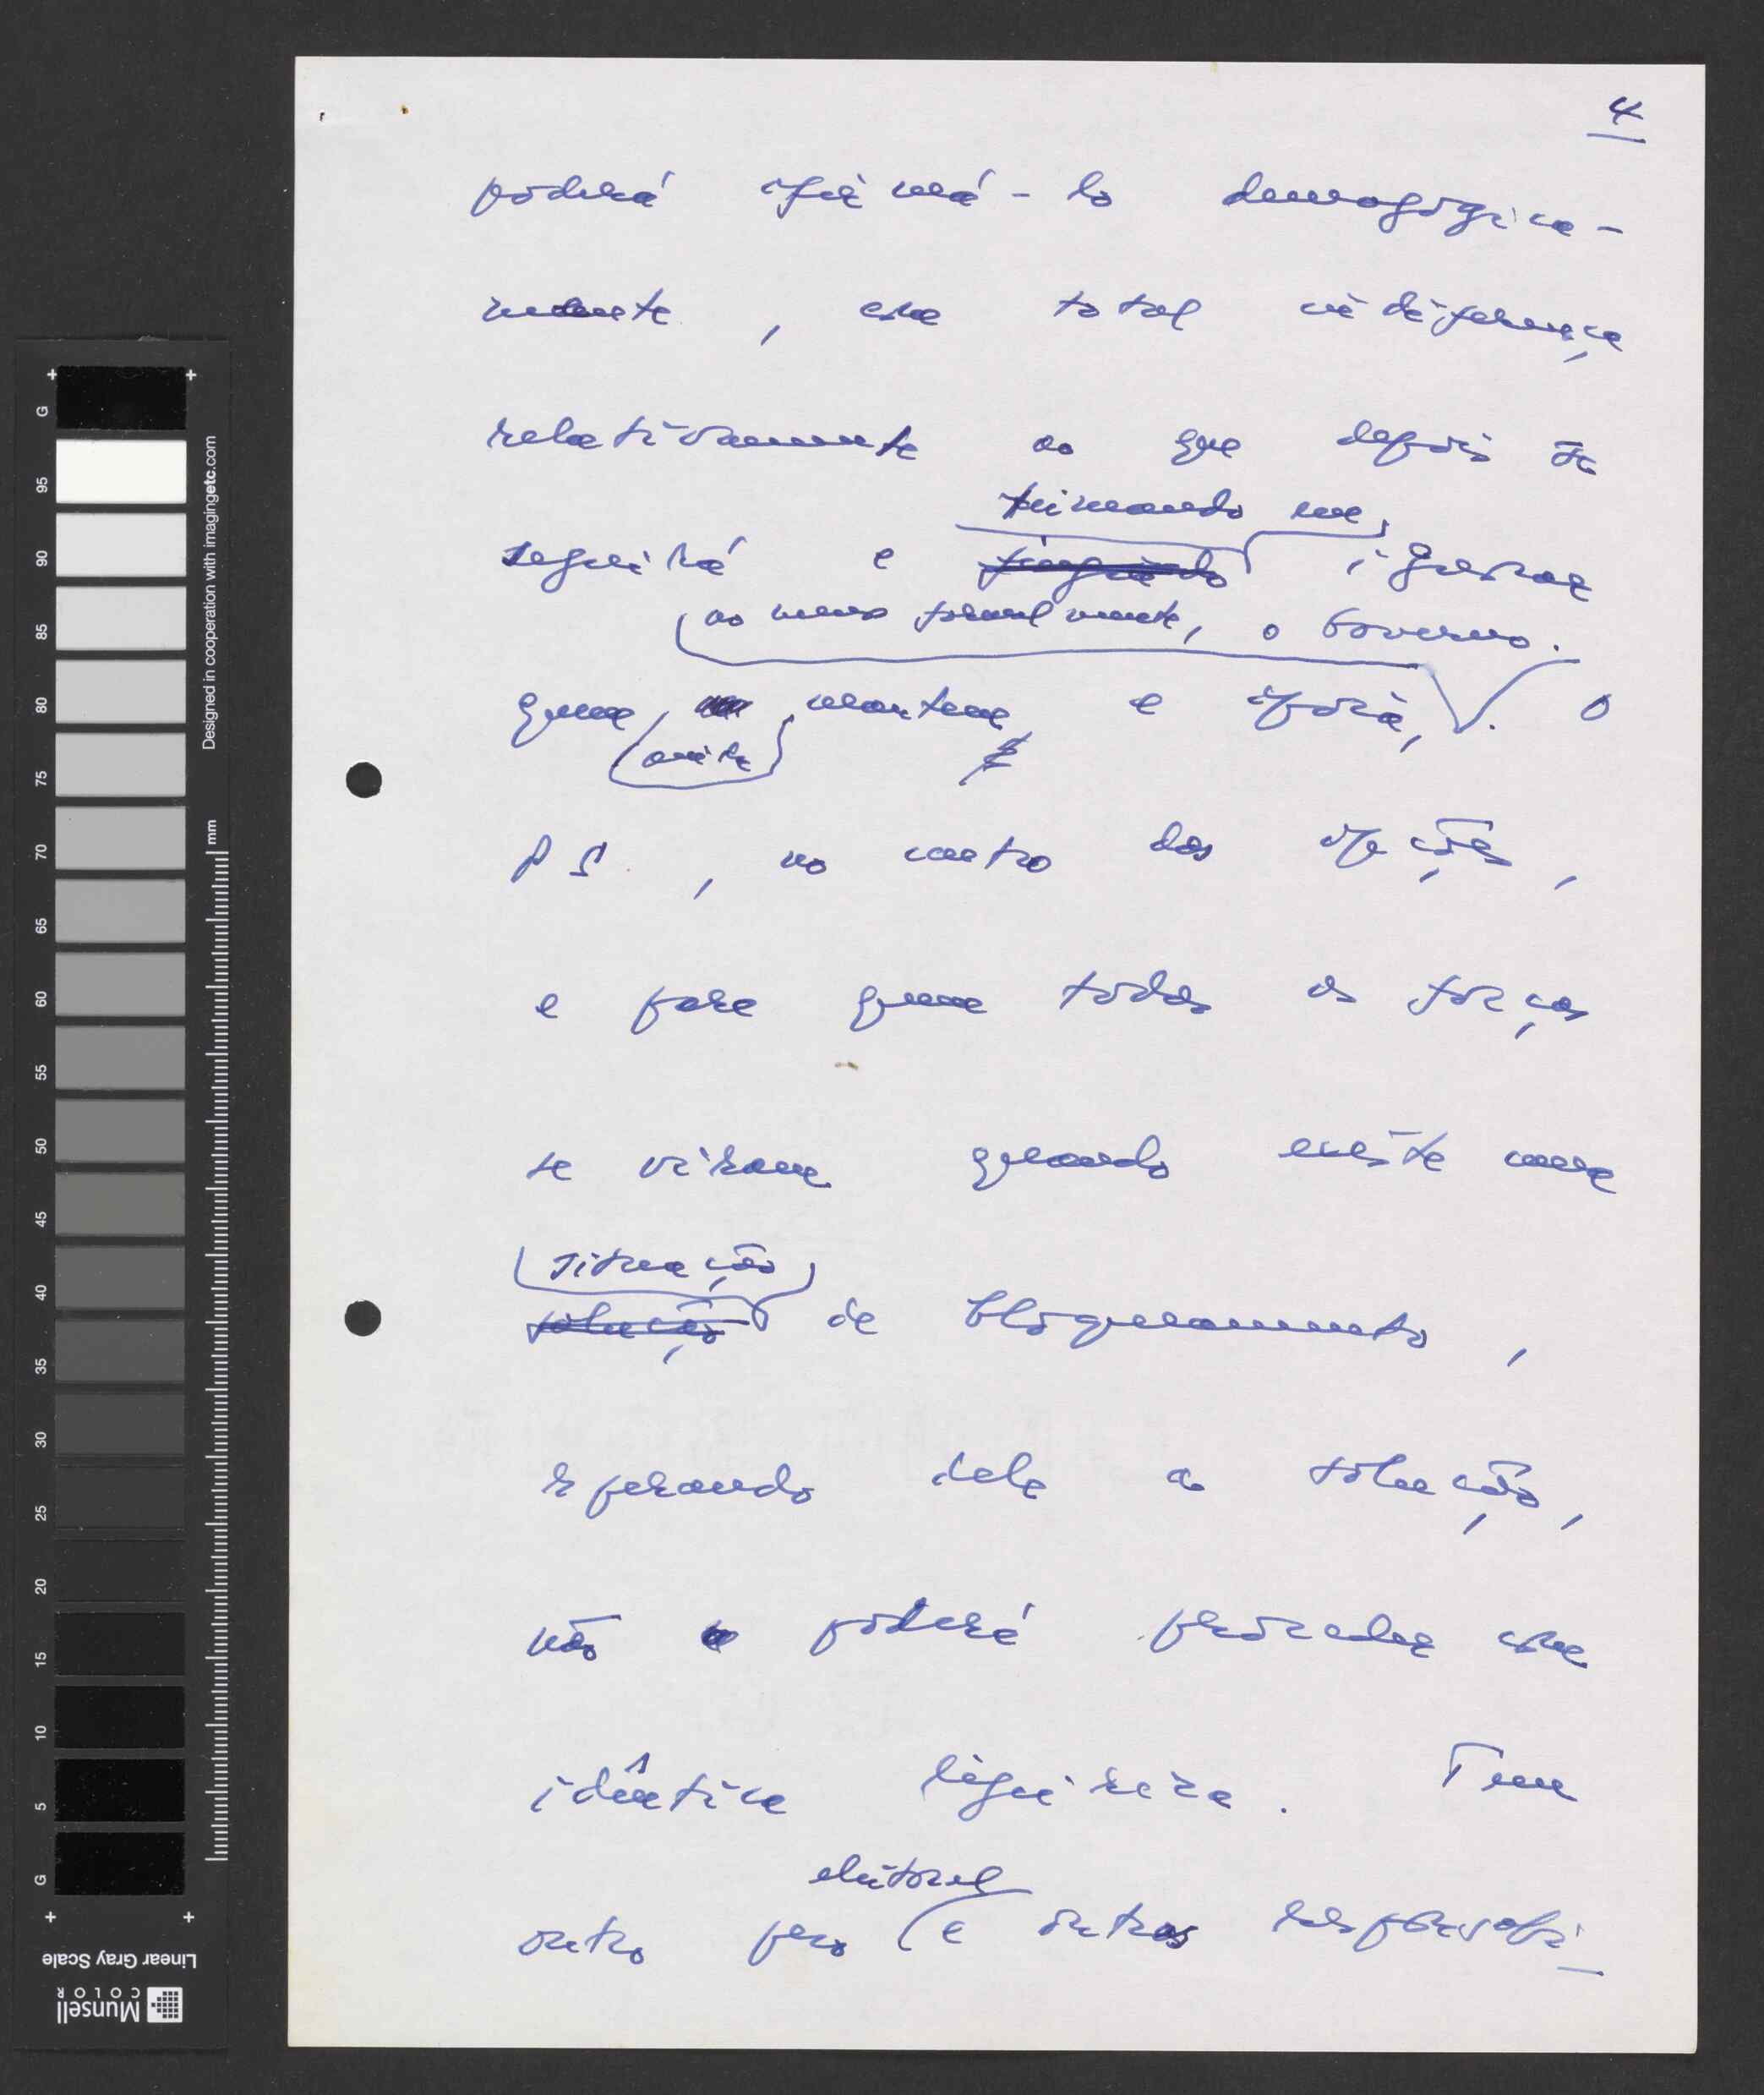 4
poderá afirmá-lo demagògica-
mente, com total indiferença
relativamente ao que depois se
teimando em,
seguirá e fingindo ignorar
ao menos formalmente, o Governo.
quem, mantem e apoia, . O
ainda
PS, no centro das opções,
e para quem todas as forças
se viram quando existe uma
situação
solução de bloqueamento,
esperando dele a solução,
não poderá proceder com
idêntica ligeireza. Tem
eleitoral
outro peso e outras responsabi-
G
95
90
85
80
75
70
65
60
55
50
45
40
35
30
25
20
15
10
5
G
mm
Designed in cooperation with imagingetc.com
Linear Gray Scale
Munsell
COLOR